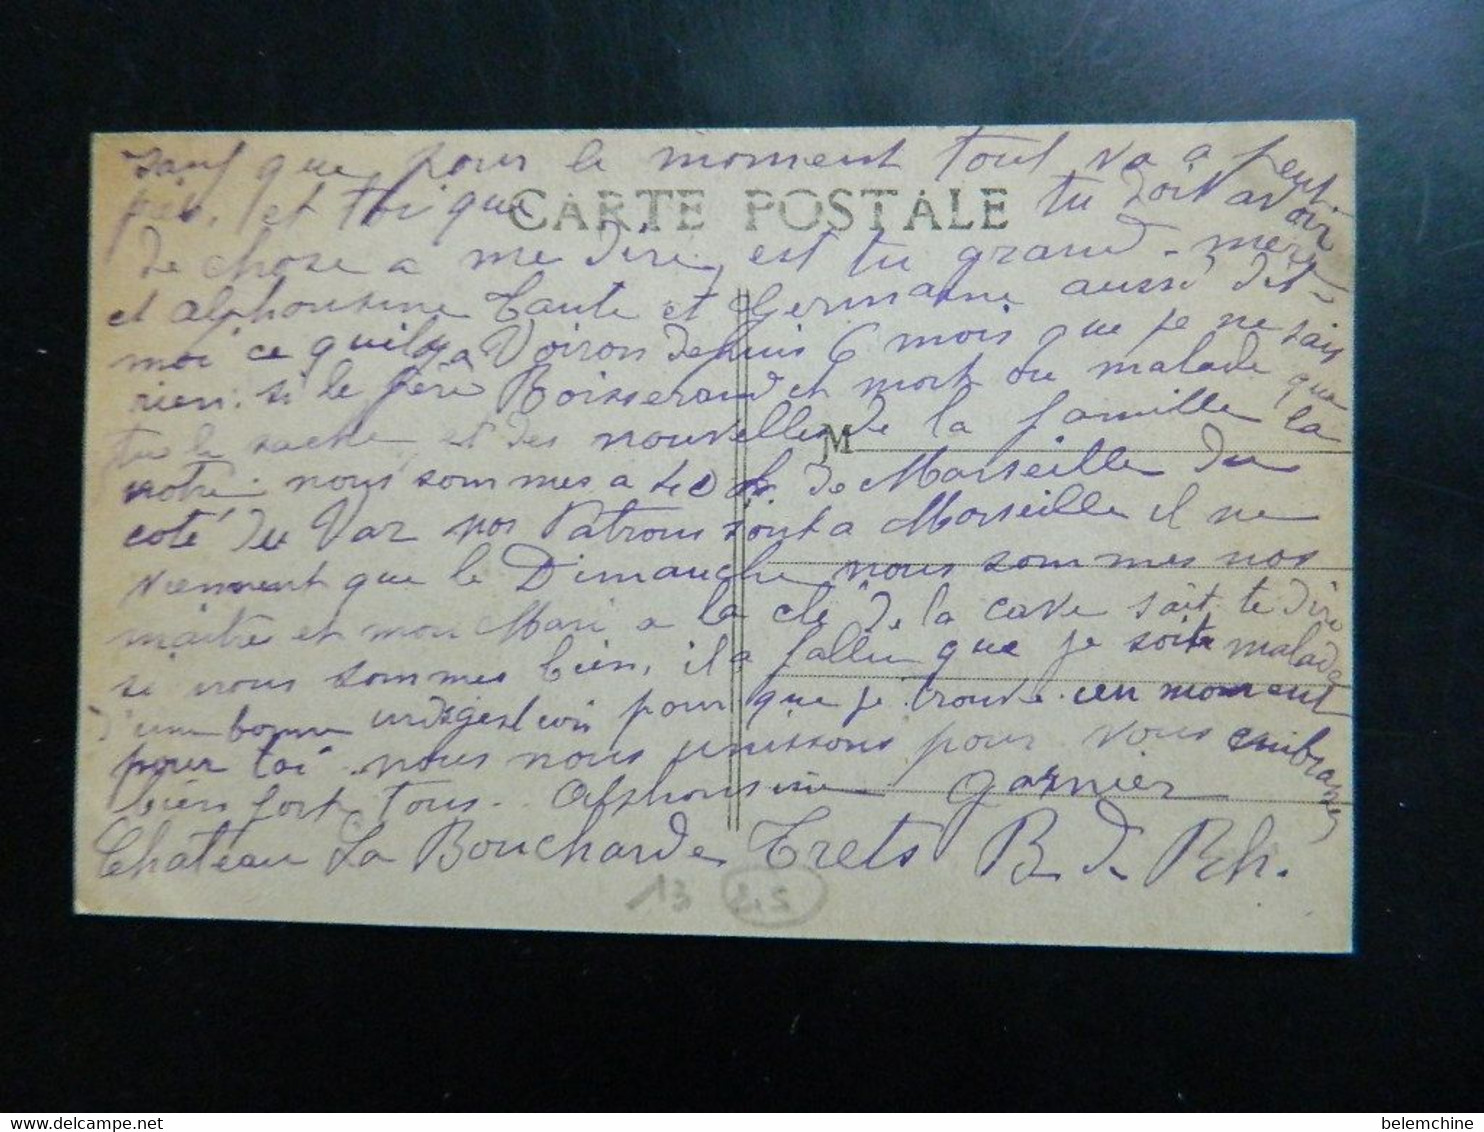 sauf que pour le moment tout va a peut
près. et toi que tu doit avoir
CARTE POSTALE
de chose a me dire, est tu grand-mère
et alphonsine Tante et Germaine aussi dit-
moi ce qu'il y a Voiron depuis 6 mois que je ne sais
rien. si le père Boisserand et mort ou malade que
tu le sache et des nouvelles de la famille la
M
notre. nous sommes a 40 k. de Marseille du
coté du Var nos Patrons sont a Marseille il ne
viennent que le Dimanche nous sommes nos
maitre et mon Mari a la clé de la cave sait te dire
si nous sommes bien, il a fallu que je soite malade
d'une bonne indigestion pour que je trouve un moment
pour toi nous nous unissons pour vous embrasser
bien fort tous. Alphonsine Garnier
Chateau La Boucharde Trets B. d. Rh.
13 245
belemchine